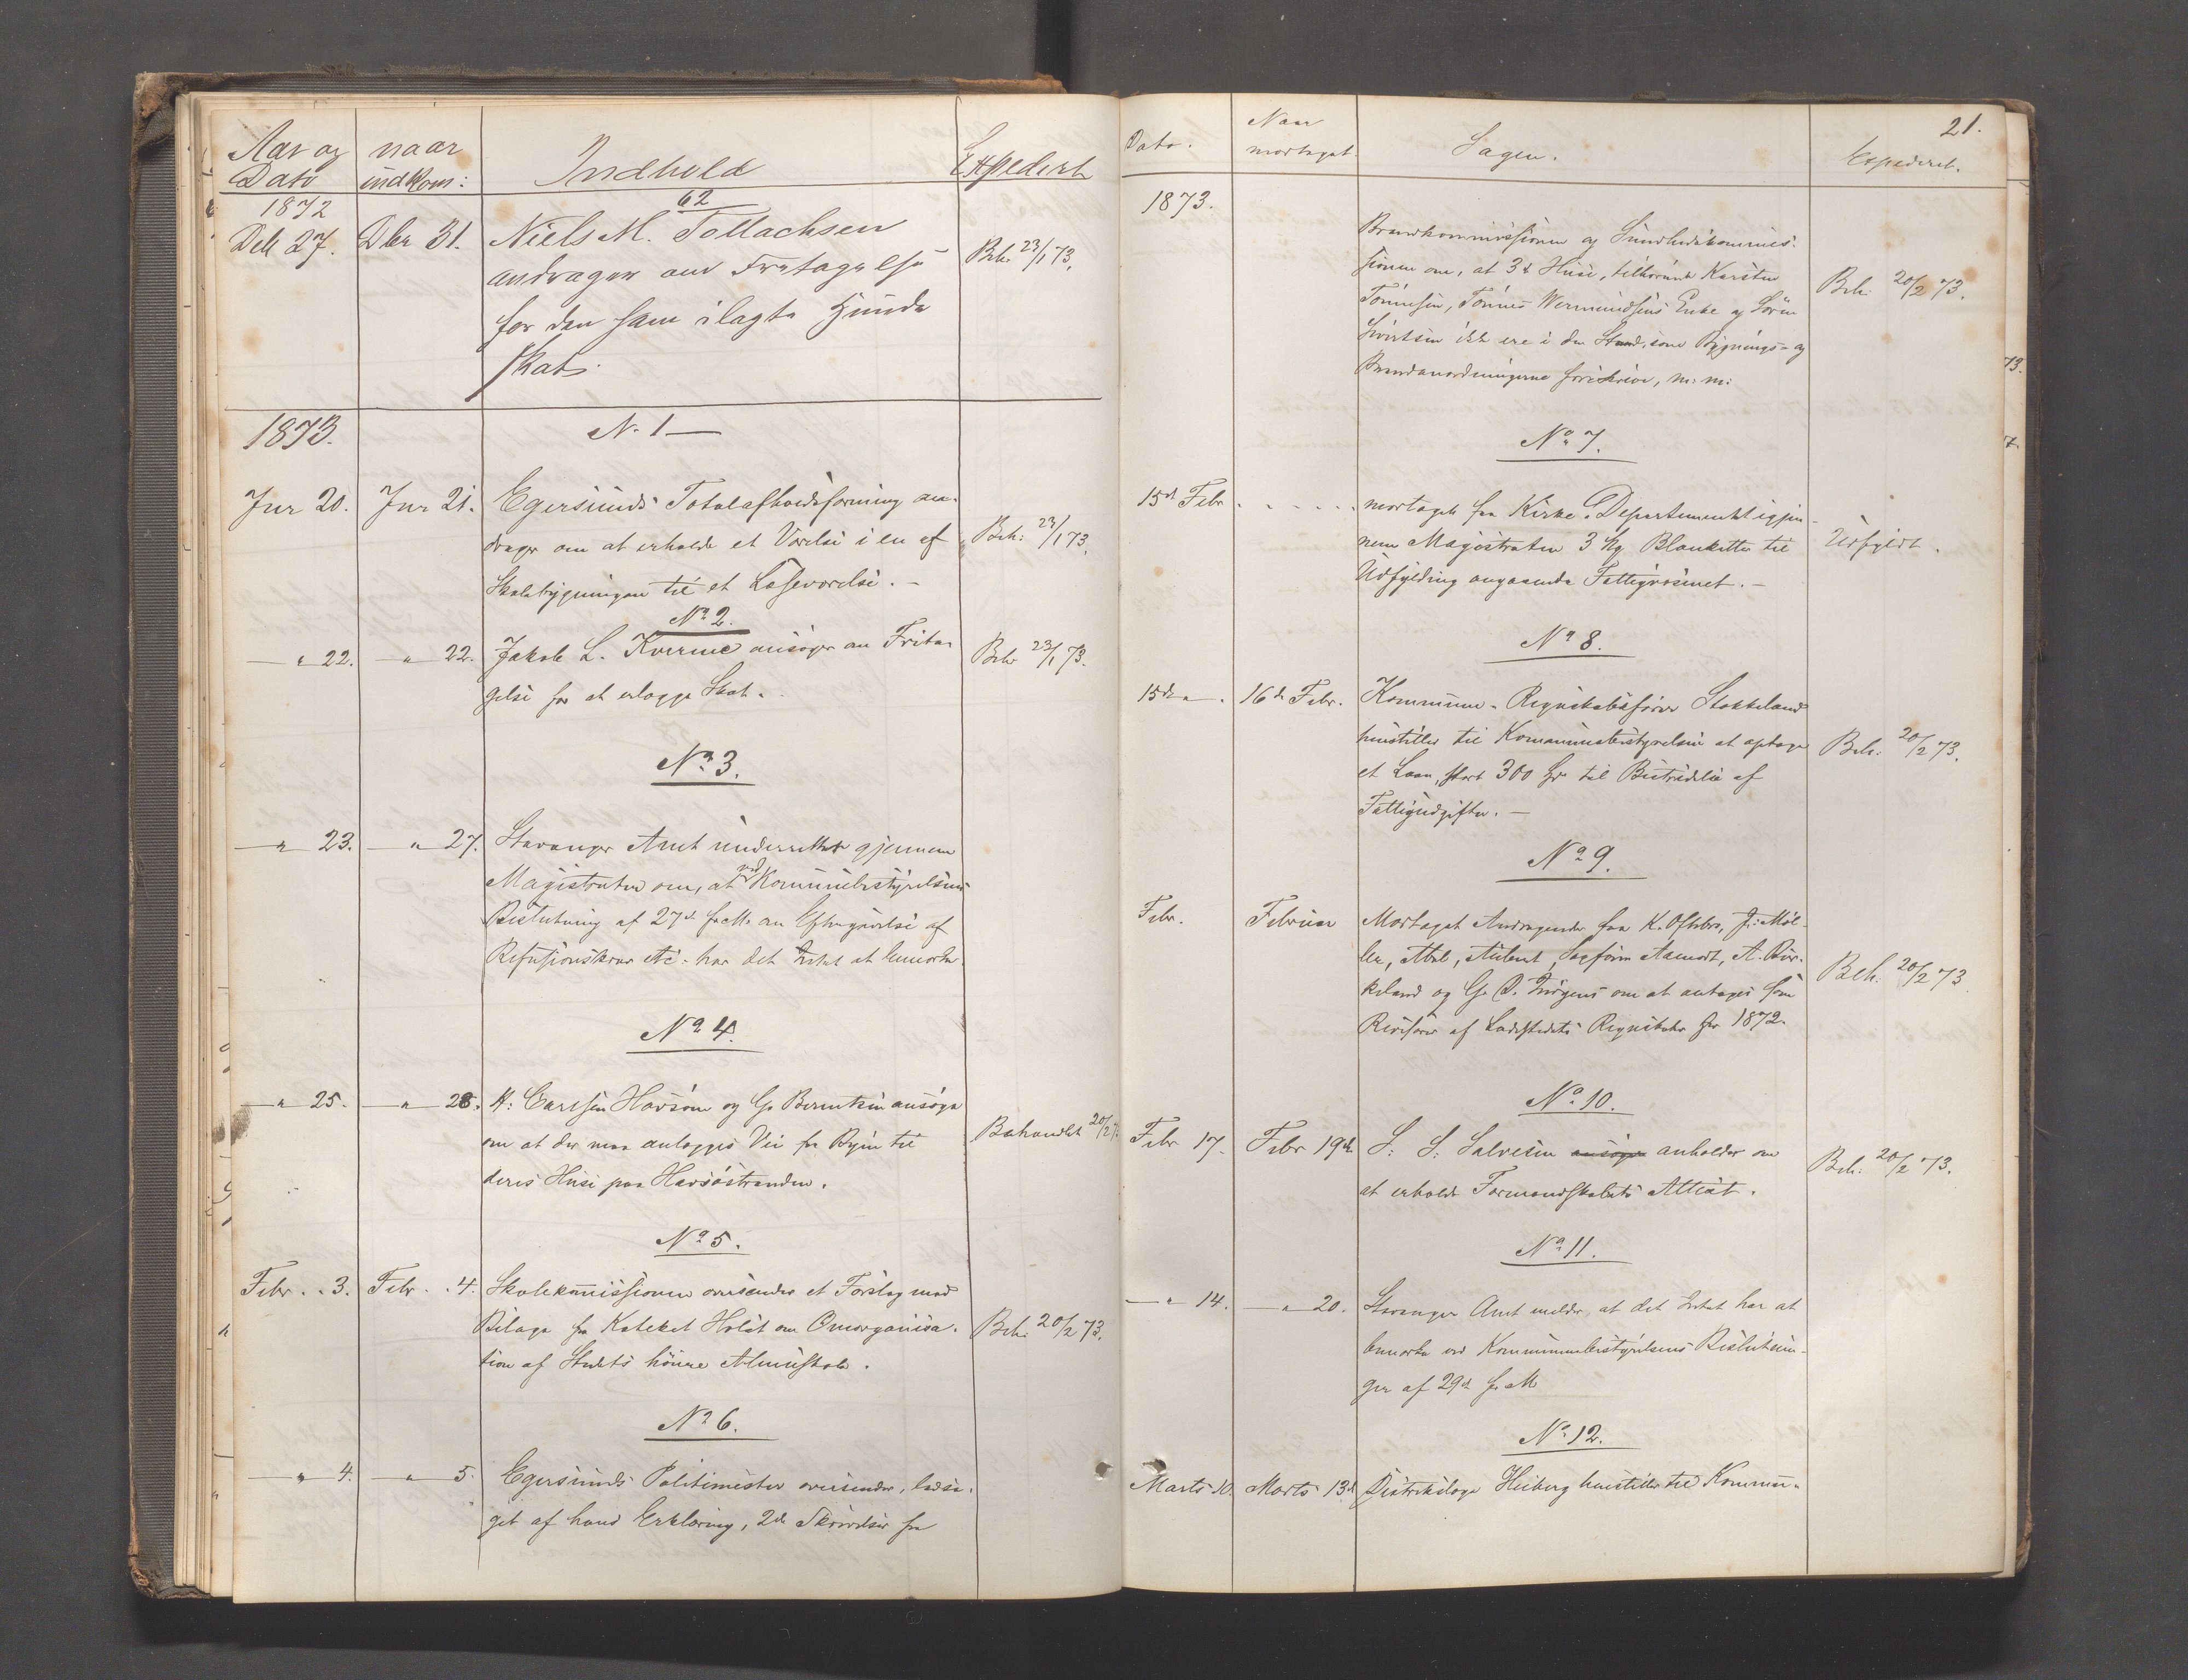 Aar og Dato naar indkom: Indhold Expedert
1872 62
Deb 27. Dbr 31. Niels M. Tollachsen
andrager om Fritagelse Beh. 23/1 73.
for den ham ilagte Hunde
skat.
1873. N. 1
Jnr 20. Jnr 21. Egersunds Totalafholdsforening an-
drager om at erholde et Værelse i en af Beh: 23/1 73.
Skolebygningen til et Læseværelse. —
No 2.
— " 22. — " 22. Jakob L. Kverme ansøger om Frita- Beh 23/1 73.
gelse for at erlægge Skat.
No 3.
— " 23. — " 27. Stavanger Amt underrettet gjennem
Magistraten om, at ved Kommunebestyrelsens
Beslutning af 27d f. M. om Eftergivelse af
Refusionskrav etc. har det Intet at bemærke.
No 4.
— " 25. — " 28. H: Carlsen Havsøen og G. Berentsen ansøge
om at der maa anlægges Vei fra Byen til Behandlet 20/2 7
deres Huse paa Havsøstranden.
No 5.
Febr. . 3. Febr. . 4. Skolekommissionen oversender et Forslag med
Bilage fra Kateket Holst om Omorganisa- Beh: 20/2 73.
tion af Stedets høiere Almuskole.
No 6.
— " 4. — " 5. Egersunds Politimester oversender, ledsa-
get af hans Erklæring, 2de Skrivelser fra
21.
Dato. Naar modtaget. Sagen. Expederet.
1873.
Brandkommissionen og Sundhedskommis-
sionen om, at 3d Huse, tilhørende Karsten Beh. 20/2 73.
Tønnesen, Tønnes Wermundsens Enke og Søren
Sivertsen ikke ere i den Stand, som Bygnings- og
Brandanordningerne foreskrive, m: m:
No 7.
15d Febr . . . . . . modtaget fra Kirke-Departementet igjen-
nem Magistraten 3 Blanketter til Udfyldt.
Udfylding angaaende Fattigvæsenet. —
No 8.
15de " . 16d Febr. Kommune-Regnskabsfører Stokkeland
henstiller til Kommunebestyrelsen at optage Beh. 20/2 73.
et Laan, stort 300 til Bestridelse af
Fattigudgifter. —
No 9.
Febr. Februar Modtaget Andragender fra K. Oftebro, J: Møl-
ler, Abel, Aubert, Sagfører Aamodt, A. Bir- Beh. 20/2 73
keland og G. D. Jürgens om at antages som
Revisorer af Ladestedets Regnskaber for 1872.
No 10.
Febr 17. Febr 19de S: S: Salvesen ansøger anholder om Beh. 20/2 73.
at erholde Formandskabets Attest.
No 11.
— " 14. — " 20. Stavanger Amt melder, at det Intet har at
bemærke ved Kommunebestyrelsens Beslutnin-
ger af 29d f. M
No 12.
Marts 10. Marts 13d Distriktslæge Heiberg henstiller til Kommu-